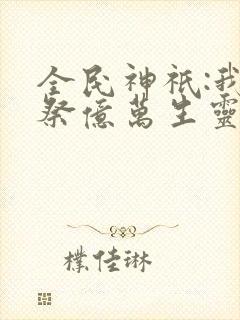 全民神祇:我
祭億萬生靈
樸佳琳